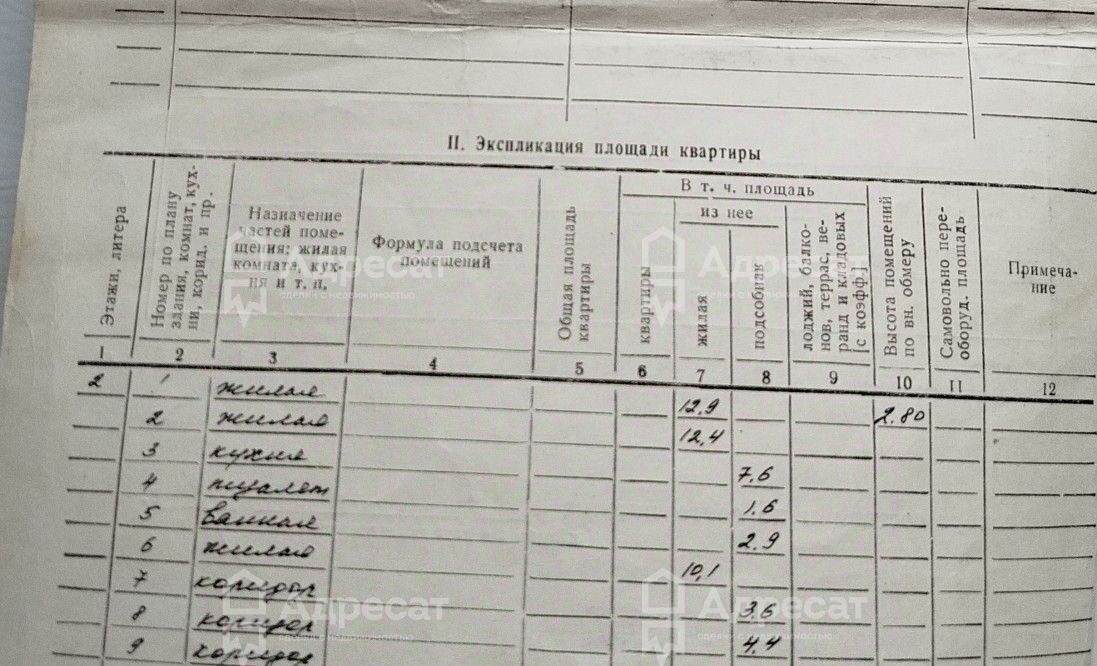 II. Экспликация площади квартиры
Этажи, литера
Номер по плану
здания, комнат, кух-
ни, корид. и пр.
Назначение
частей поме-
щения: жилая
комната, кух-
ня и т. п.
Формула подсчета
помещений
Общая площадь
квартиры
В т. ч. площадь
из нее
квартиры
жилая
подсобная
лоджий, балко-
нов, террас, ве-
ранд и кладовых
[с коэфф.]
Высота помещений
по вн. обмеру
Самовольно пере-
оборуд. площадь
Примеча-
ние
1 2 3 4 5 6 7 8 9 10 11 12
2 1 жилая 12,9 2.80
2 жилая 12,4
3 кухня 7,6
4 туалет 1,6
5 ванная 2,9
6 жилая 10,1
7 коридор 3,6
8 коридор 4,4
9 коридор
Адресат
сделки с недвижимостью
Адресат
сделки с недвижимостью
Адресат
сделки с недвижимостью
Адресат
сделки с недвижимостью